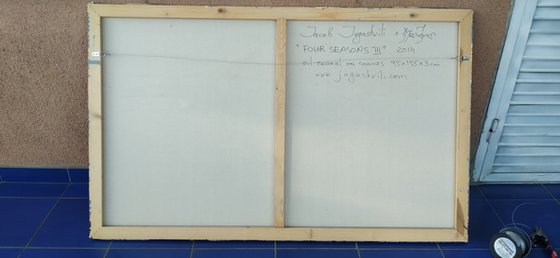 Jacob Jugashvili
"FOUR SEASONS III" 2014
oil enamel on canvas 95x155x3cm
www.jugashvili.com